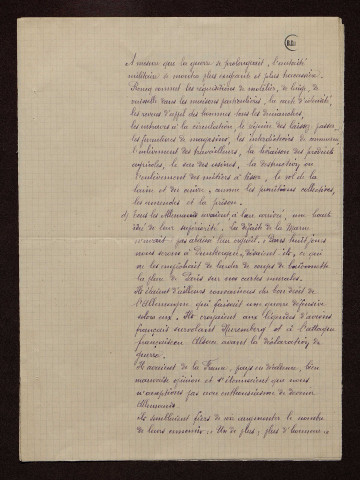 A mesure que la guerre se prolongeait, l'autorité
militaire se montra plus exigeante et plus tracassière.
vinrent les réquisitions de mobilier, de linge, de
vaisselle dans les maisons particulières, la carte d'identité,
les revues d'appel des hommes tous les dimanches,
les entraves à la circulation, le régime des laissez-passer,
les fermetures de magasins, les interdictions de commerce
l'enlèvement des travailleurs, la livraison des produits
agricoles, le sac des usines, la destruction ou
l'enlèvement des métiers à tisser, le vol de la
laine et du cuivre, avec les punitions collectives,
les amendes et la prison.
d) Tous les Allemands avaient à leur arrivée, une haute
idée de leur supériorité. La défaite de la Marne
n'avait pas abaissé leur orgueil. "Dans huit jours
nous serons à Dunkerque", disaient-ils, ce qui
ne les empêchait de larder de coups de baïonnette
la place de Paris sur nos cartes murales.
Ils étaient d'ailleurs convaincus du bon droit de
l'Allemagne qui faisait une guerre défensive
selon eux. Ils croyaient aux légendes d'avions
français survolant Nuremberg et à l'attaque
française en Alsace avant la déclaration de
guerre.
Ils avaient de la France, pays en décadence, bien
mauvaise opinion et s'étonnaient que nous
n'acceptions pas avec enthousiasme de devenir
Allemands.
Ils semblaient fiers de voir augmenter le nombre
de leurs ennemis: "Un de plus, plus d'honneur"